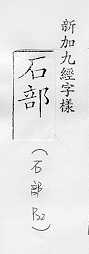 新加九經字樣
石部
（石部 P32）